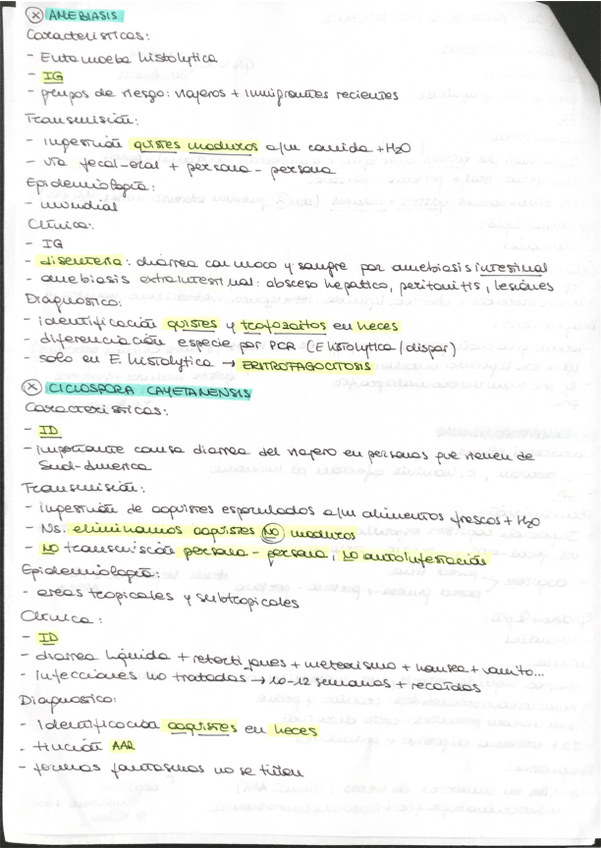 ⓧ AMEBIASIS
Características:
- Entamoeba histolytica
- IG
- grupos de riesgo: viajeros + inmigrantes recientes
Transmisión:
- ingestión quistes maduros a/m comida + H2O
- vía fecal-oral + persona - persona
Epidemiología:
- mundial
Clínica:
- IG
- disentería: diarrea con moco y sangre por amebiasis intestinal
- amebiasis extraintestinal: absceso hepático, peritonitis, lesiones
Diagnóstico:
- identificación quistes y trofozoitos en heces
- diferenciación especie por PCR (E histolytica / dispar)
- solo en E. histolytica → ERITROFAGOCITOSIS
ⓧ CICLOSPORA CAYETANENSIS
Características:
- ID
- importante causa diarrea del viajero en personas que vienen de
Sud-América
Transmisión:
- ingestión de ooquistes esporulados a/m alimentos frescos + H2O
- Ns. eliminamos ooquistes NO maduros
- NO transmisión persona - persona, NO autoinfestación
Epidemiología:
- areas tropicales y subtropicales
Clínica:
- ID
- diarrea líquida + retortijones + meteorismo + nausea + vomito...
- infecciones no tratadas → 10-12 semanas + recaídas
Diagnostico:
- Identificación ooquistes en heces
- tinción AAR
- formas fantasmas no se tiñen